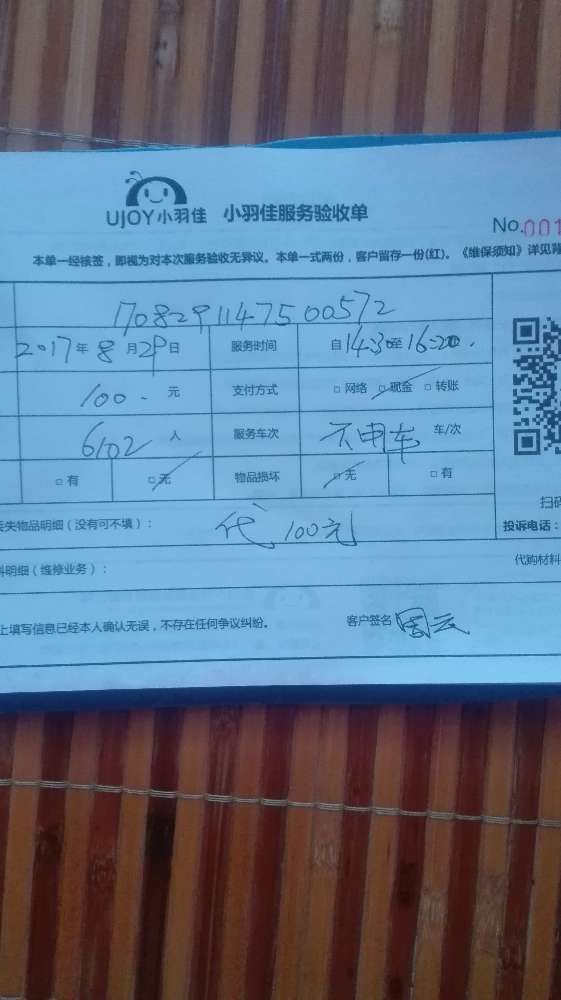 UJOY小羽佳 小羽佳服务验收单
No.001
本单一经核签，即视为对本次服务验收无异议。本单一式两份，客户留存一份(红)。《维保须知》详见背
1708291147500572
2017年8月29日 服务时间 自14:30至16:20.
100.-元 支付方式 □网络 □现金 □转账
6102人 服务车次 不申车 车/次
□有 □无 物品损坏 □无 □有
丢失物品明细（没有可不填）： 代 100元
扫码
投诉电话：
料明细（维修业务）：
代购材料
上填写信息已经本人确认无误，不存在任何争议纠纷。 客户签名 周云